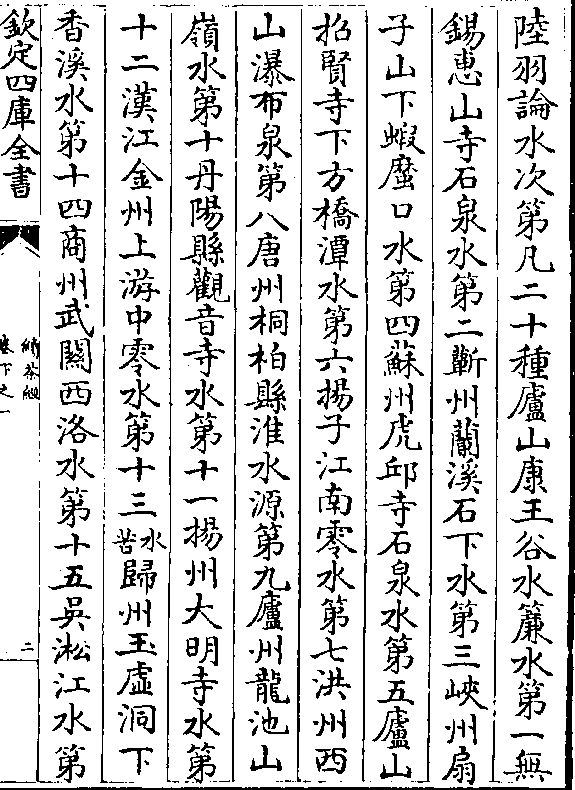 陸羽論水次第凡二十種廬山康王谷水簾水第一無
錫惠山寺石泉水第二蘄州蘭溪石下水第三峽州扇
子山下蝦蟇口水第四蘇州虎邱寺石泉水第五廬山
招賢寺下方橋潭水第六揚子江南零水第七洪州西
山瀑布泉第八唐州桐柏縣淮水源第九廬州龍池山
嶺水第十丹陽縣觀音寺水第十一揚州大明寺水第
十二漢江金州上游中零水第十三水苦歸州玉虛洞下
香溪水第十四商州武關西洛水第十五吳淞江水第
欽定四庫全書
續茶經
卷下之一
二